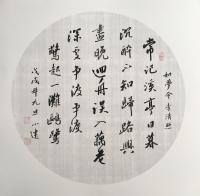 如夢令 李清照
常記溪亭日暮
沉醉不知歸路興
盡晚回舟誤入藕花
深處爭渡爭渡
驚起一灘鷗鷺
戊戌年九月小